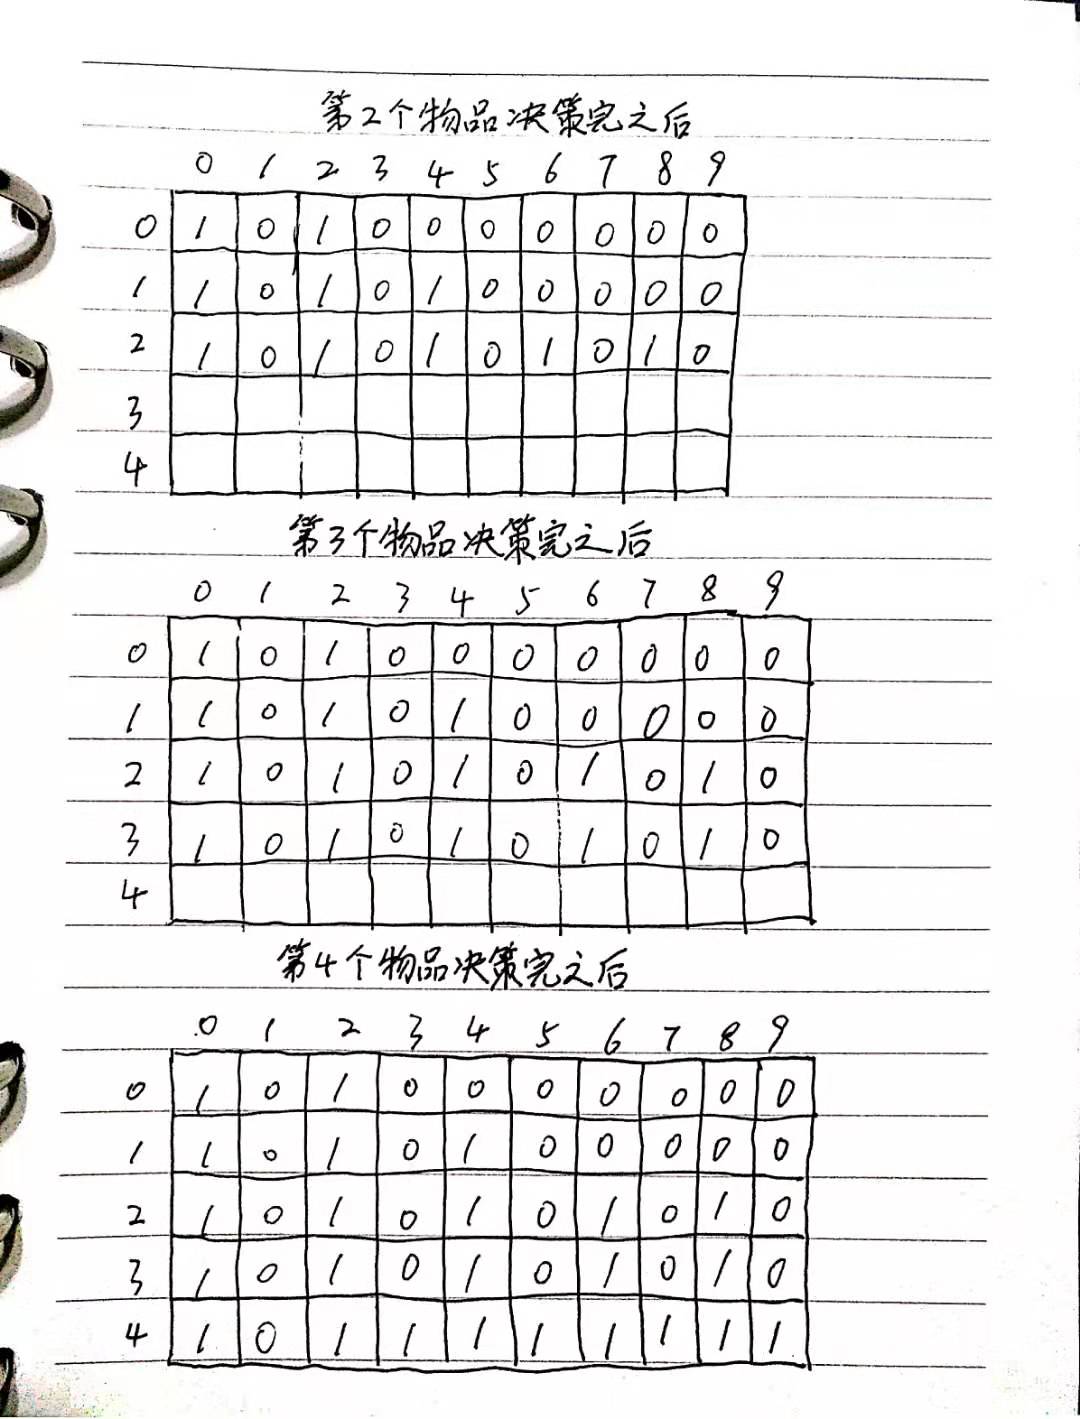 第2个物品决策完之后
0 1 2 3 4 5 6 7 8 9
0 1 0 1 0 0 0 0 0 0 0
1 1 0 1 0 1 0 0 0 0 0
2 1 0 1 0 1 0 1 0 1 0
3
4
第3个物品决策完之后
0 1 2 3 4 5 6 7 8 9
0 1 0 1 0 0 0 0 0 0 0
1 1 0 1 0 1 0 0 0 0 0
2 1 0 1 0 1 0 1 0 1 0
3 1 0 1 0 1 0 1 0 1 0
4
第4个物品决策完之后
0 1 2 3 4 5 6 7 8 9
0 1 0 1 0 0 0 0 0 0 0
1 1 0 1 0 1 0 0 0 0 0
2 1 0 1 0 1 0 1 0 1 0
3 1 0 1 0 1 0 1 0 1 0
4 1 0 1 1 1 1 1 1 1 1